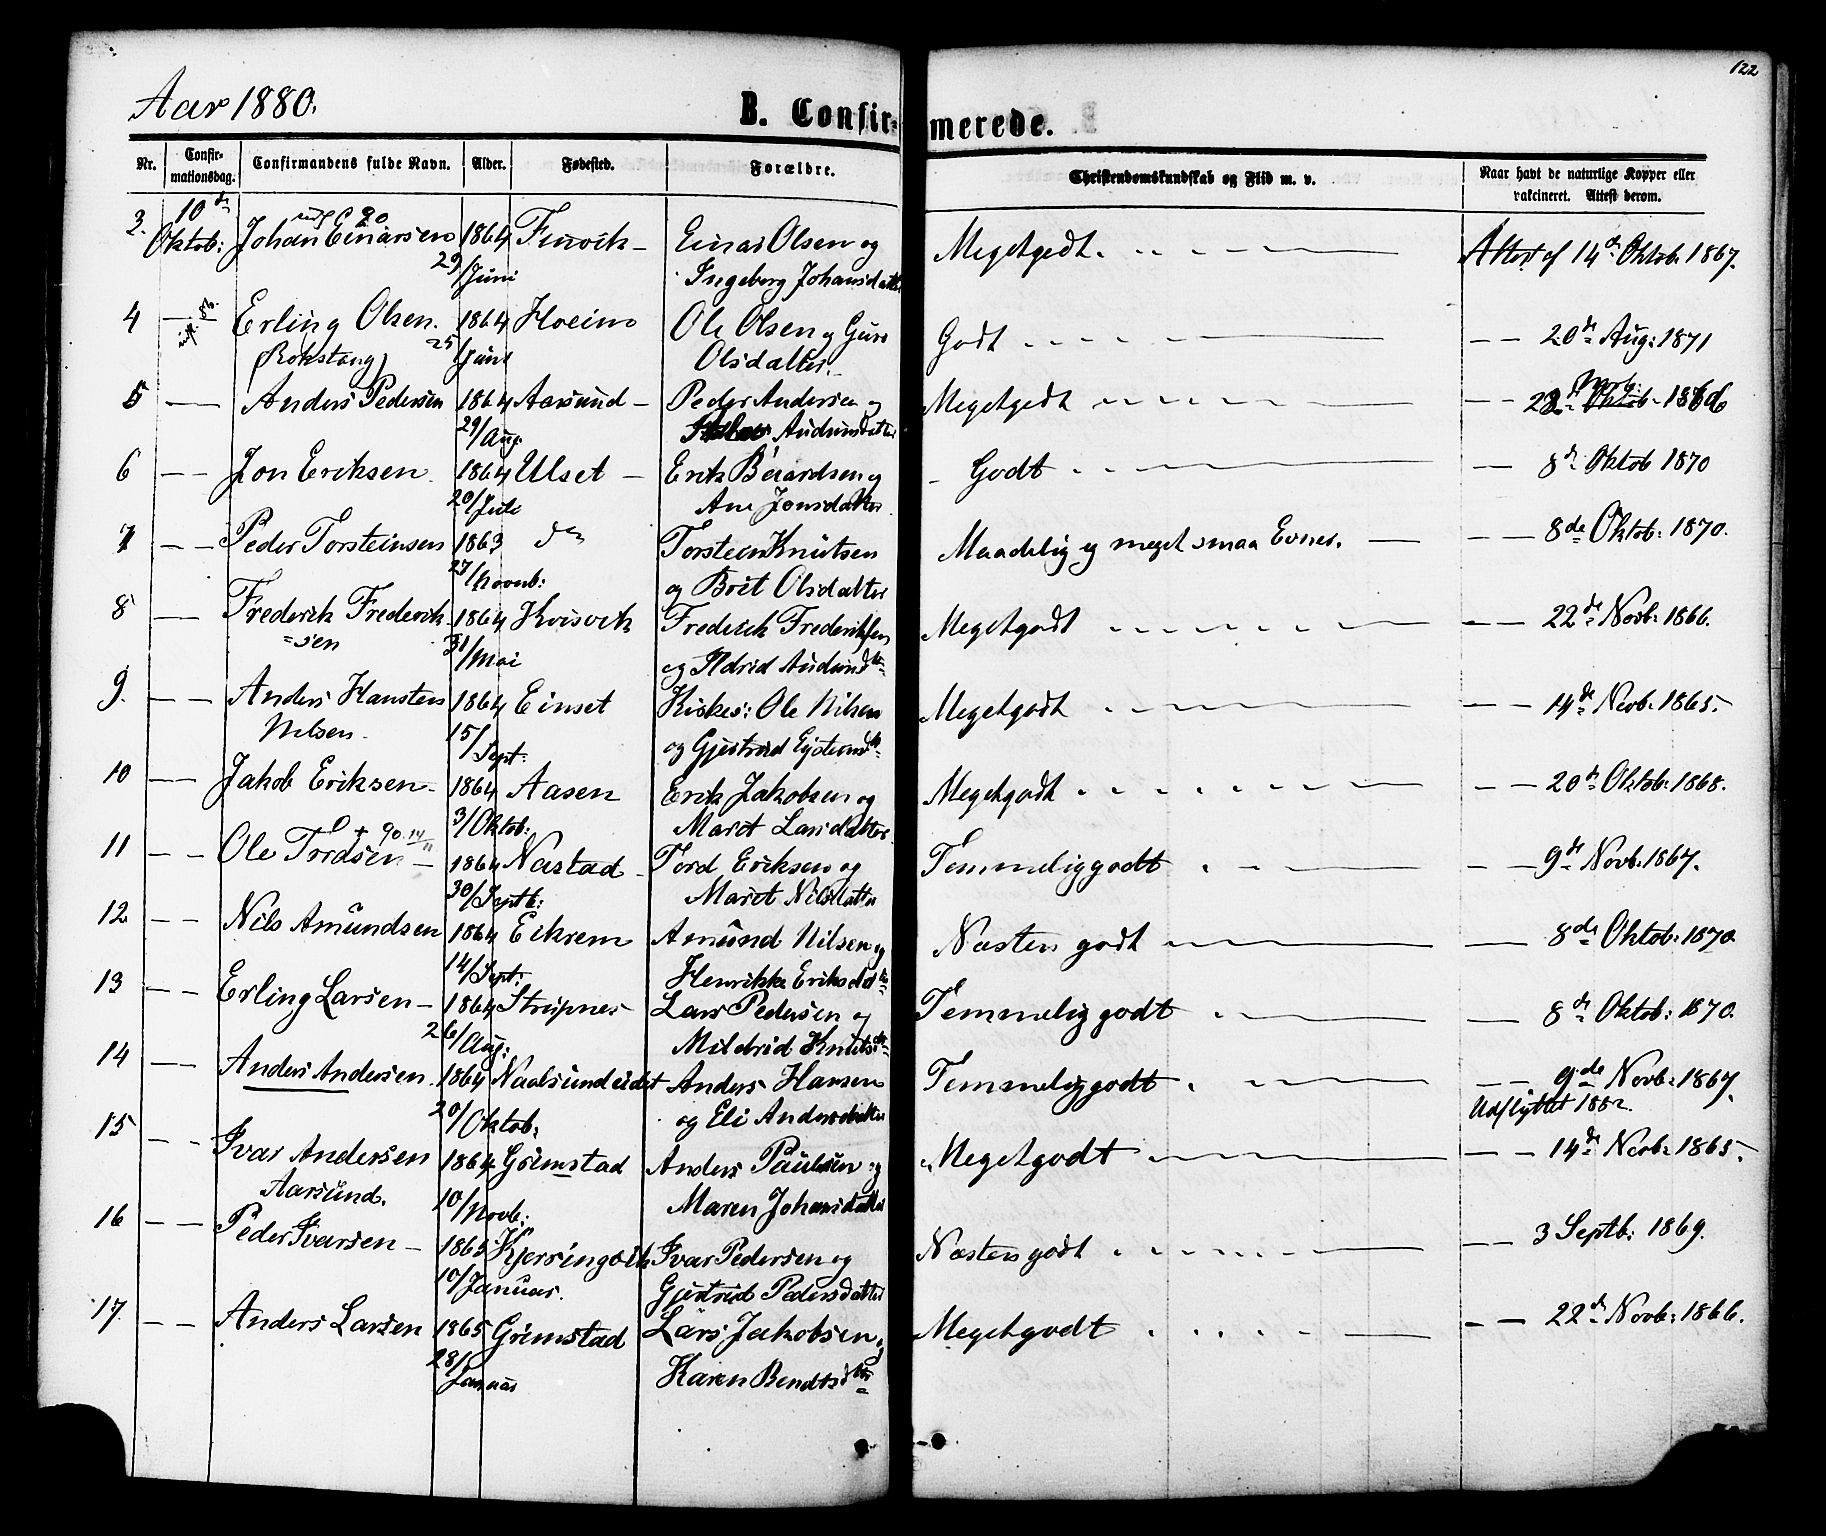 122
Aar 1880.
B. Confirmerede.
Nr. Confirmationsdag. Confirmandens fulde Navn. Alder. Fødested. Forældre. Christendomskundskab og Flid m. v. Naar havt de naturlige Kopper eller vakcineret. Attest derom.
3. 10de Oktob: Johan Einarsen 1864 29/Juni Finvik – Einar Olsen og
Ingeborg Johansdatter Megetgodt. Attest af 14de Oktob. 1867.
4 — Erling Olsen. 1864 Hoeim Ole Olsen og Guri Godt — — 20de Aug: 1871
(Rokstang) 25/Juni Olsdatter.
5 — Anders Pedersen 1864 Aarsund – Peder Andersen og Megetgodt — 22de Novb: 1866
29/Aug. Audunsdatter
6 — — Jon Eriksen. 1864 Ulset – Erik Berardsen og Godt — 8de Oktob 1870
20/Juli Ane Jonsdatter
7 — — Peder Torsteinsen 1863 do Torstein Knutsen Maadelig og meget smaa Evner. — — — 8de Oktob: 1870.
27/Novnb: og Brit Olsdatter
8 — Frederik Frederik- 1864 Kvisvik Frederik Frederiksen Megetgodt — — 22de Novb: 1866.
=sen 31/Mai og Ildrid Audunsdtr
9. — — Anders Hansten 1864 Einset Kirkes: Ole Nilsen Megetgodt — — 14de Novb. 1865.
Nilsen. 15/Sept: og Gjertrud
10 — — Jakob Eriksen – 1864 Aasen Erik Jakobsen og Megetgodt — — 20de Oktob: 1868.
3/Oktob: Marit Larsdatter
+ 90. 14/11
11 — — Ole Tordsen – 1864 Nastad – Tord Eriksen og Temmeliggodt — — 9de Novb. 1867.
30/Septb: Marit Nilsdatter
12 — — Nils Amundsen 1864 Eikrem Amund Nilsen og Næsten godt — 8de Oktob: 1870
14/Sept: Henrikke Eriksdtr
13 — — Erling Larsen – 1864 Stripnes Lars Pedersen og Temmelig godt — 8de Oktob: 1870.
26/Aug: Mildrid Knutsdtr
14 — Anders Andersen. 1864 Naalsundeidet Anders Hansen Temmeliggodt — — 9de Novb: 1867.
20/Oktob: og Eli Andersdatter Udflyttet 1882.
15 — — Ivar Andersen 1864 Grimstad Anders Paulsen og Megetgodt — — 14de Novb: 1865.
Aarsund. 10/Novb: Maren Johansdatter
16 — — Peder Ivarsen – 1865 Kjerringvik Ivar Pedersen og Næsten godt — — 3 Septb: 1869.
10/Januar. Gjertrud Pedersdatter
17. — — Anders Larsen 1865 Grimstad Lars Jakobsen og Megetgodt — — 22de Novb: 1866.
28/Januar Karen Bendtsdtr